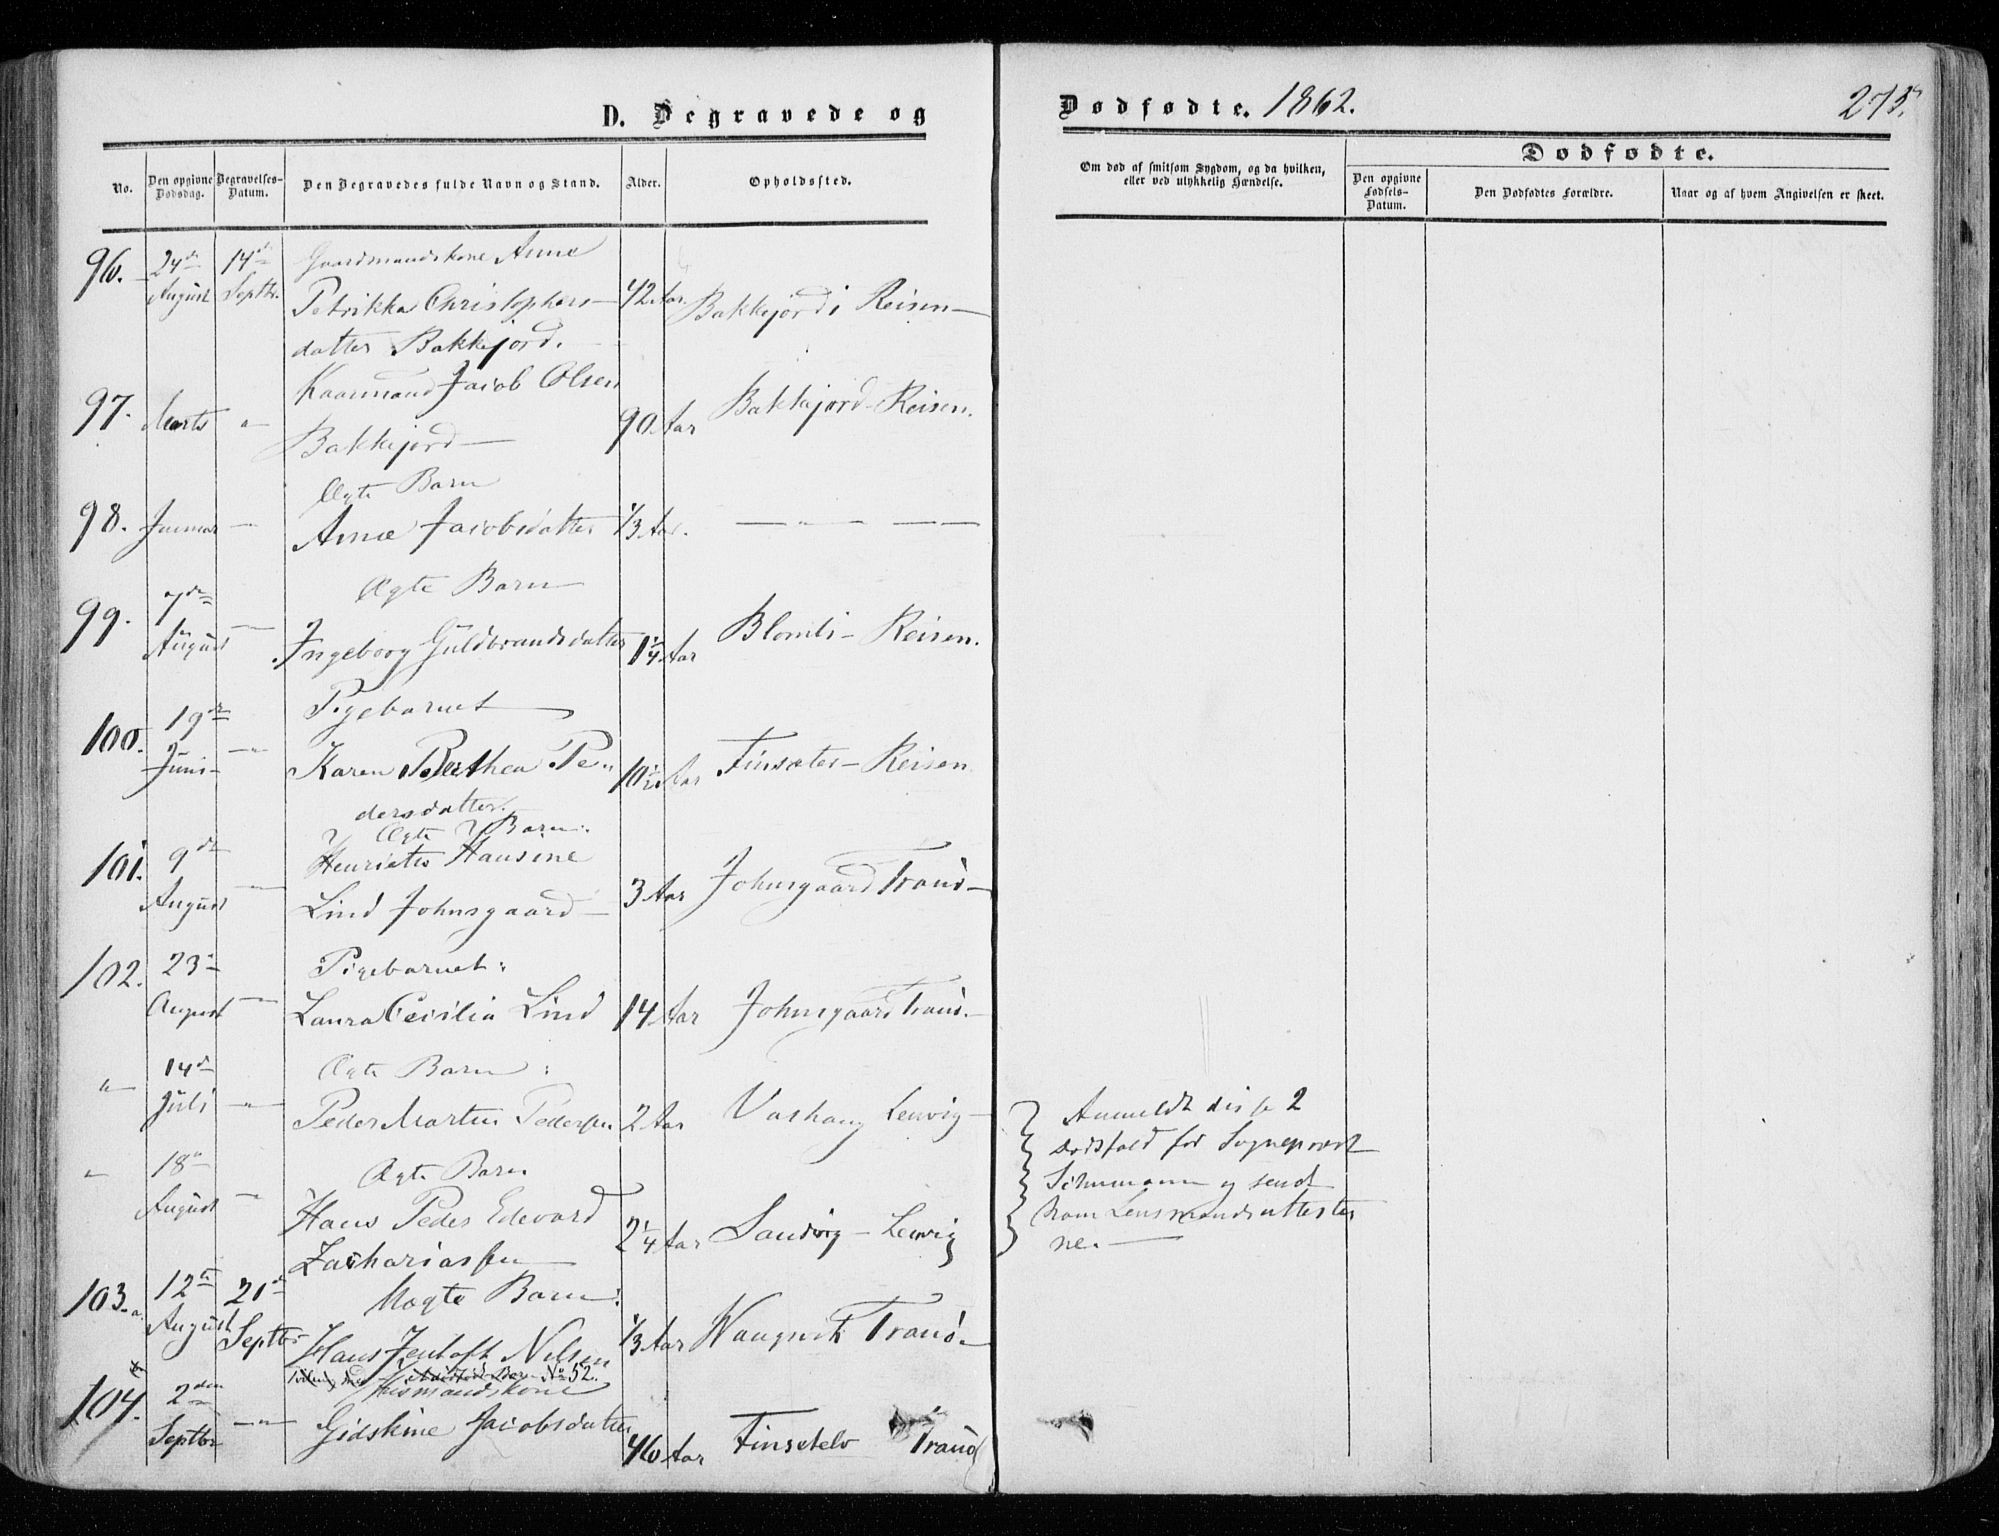 D. Begravede og
Dødfødte. 1862.
275.
No.
Den opgivne Dødsdag.
Begravelses-Datum.
Den Begravedes fulde Navn og Stand.
Alder.
Opholdssted.
Om død af smitsom Sygdom, og da hvilken, eller ved ulykkelig Hændelse.
Dødfødte.
Den opgivne Fødsels-Datum.
Den Dødfødtes Forældre.
Naar og af hvem Angivelsen er skeet.
96. 24de August 14de Septbr. Gaardmandskone Anne
Petrikka Christophers- 42 Aar. Bakkejord i Reisen
datter Bakkejord.
97. Marts " Kaarmand Jacob Olsen
Bakkejord 90 Aar Bakkejord - Reisen.
Ægte Barn
98. Januar — Anne Jacobsdatter 1/3 Aar. — " — — —
Ægte Barn
99. 7de August — Ingeborg Guldbrandsdatter 1 1/4 Aar Blomli - Reisen.
Pigebarnet
100. 19de Juni — " — Karen Berthea Pe- 10 1/2 Aar Finsæter - Reisen
dersdatter.
Ægte Barn:
101. 9de August — " — Henriette Hansine
Lind Johnsgaard 3 Aar Johnsgaard Tranö
Pigebarnet:
102. 23de August — " — Laura Cecilia Lind 14 Aar Johnsgaard Tranö.
Ægte Barn:
" 14de Juli — " — Peder Martin Pedersen 2 Aar Vashaug Lenvig
Anmeldt disse 2
Dødsfald for Sogneprest
Schumann og sendt
ham Lensmandsattester
ne.
Ægte Barn
" 18de August — " Hans Peder Edevard
Zachariassen 2 1/4 Aar Sandvig - Lenvig
Uægte Barn:
103. a. 12te August 21de Septbr Hans Jentoft Nilsen 1/3 Aar Wangsvik Tranö
No 52.
Huusmandskone
104. 2den Septbr — " — Gidskine Jacobsdatter 46 Aar Finsetelv Tranö